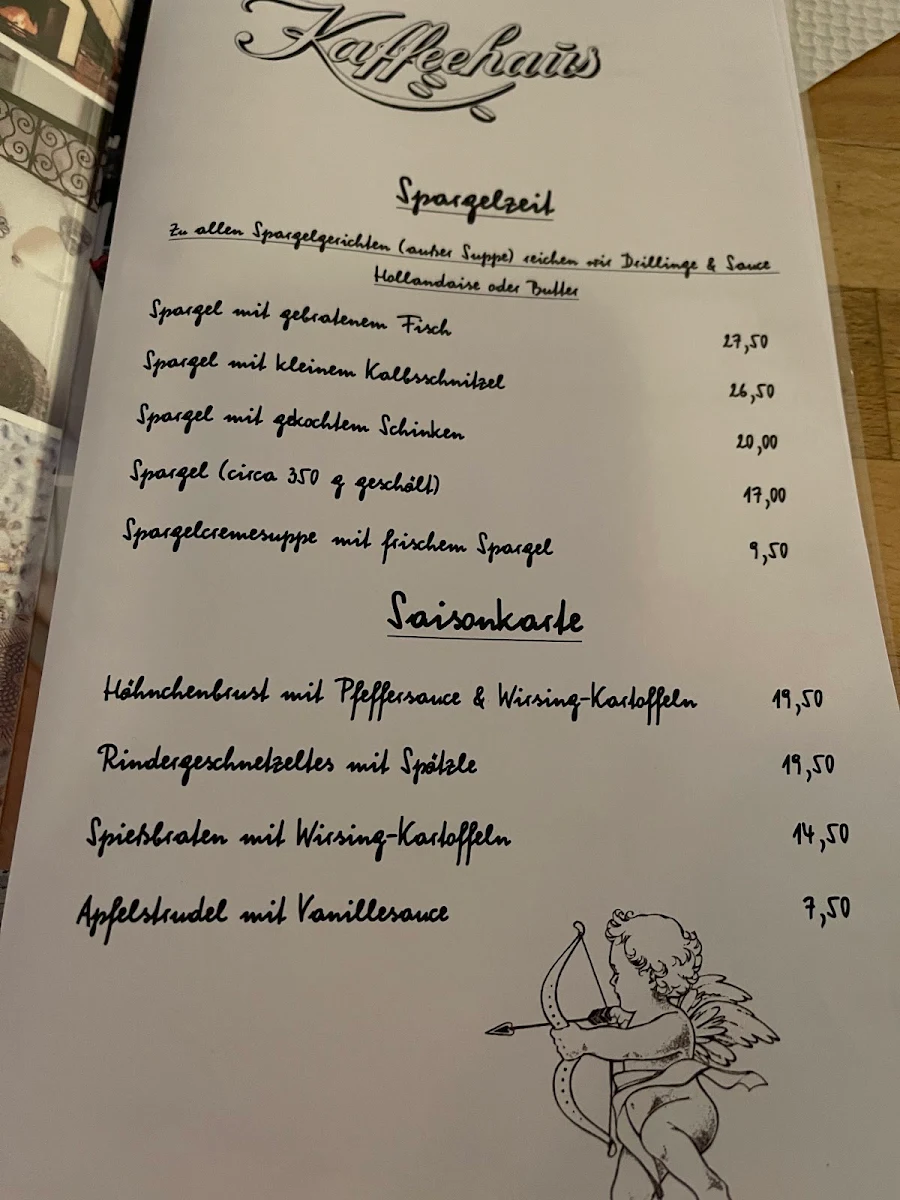 Kaffeehaus
Spargelzeit
Zu allen Spargelgerichten (außer Suppe) reichen wir Drillinge & Sauce
Hollandaise oder Butter
Spargel mit gebratenem Fisch 27,50
Spargel mit kleinem Kalbsschnitzel 26,50
Spargel mit gekochtem Schinken 20,00
Spargel (circa 350 g geschält) 17,00
Spargelcremesuppe mit frischem Spargel 9,50
Saisonkarte
Hähnchenbrust mit Pfeffersauce & Wirsing-Kartoffeln 19,50
Rindergeschnetzeltes mit Spätzle 19,50
Spießbraten mit Wirsing-Kartoffeln 14,50
Apfelstrudel mit Vanillesauce 7,50